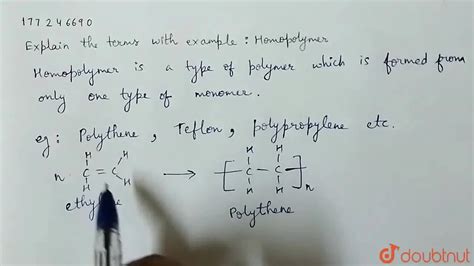 177 2 4 6690
Explain the terms with example : Homopolymer
Homopolymer is a type of polymer which is formed from
only one type of monomer.
eg : Polythene, Teflon, polypropylene etc.
H H H H
n C = C → [ C - C ]n
H H H H
Polythene
doubtnut